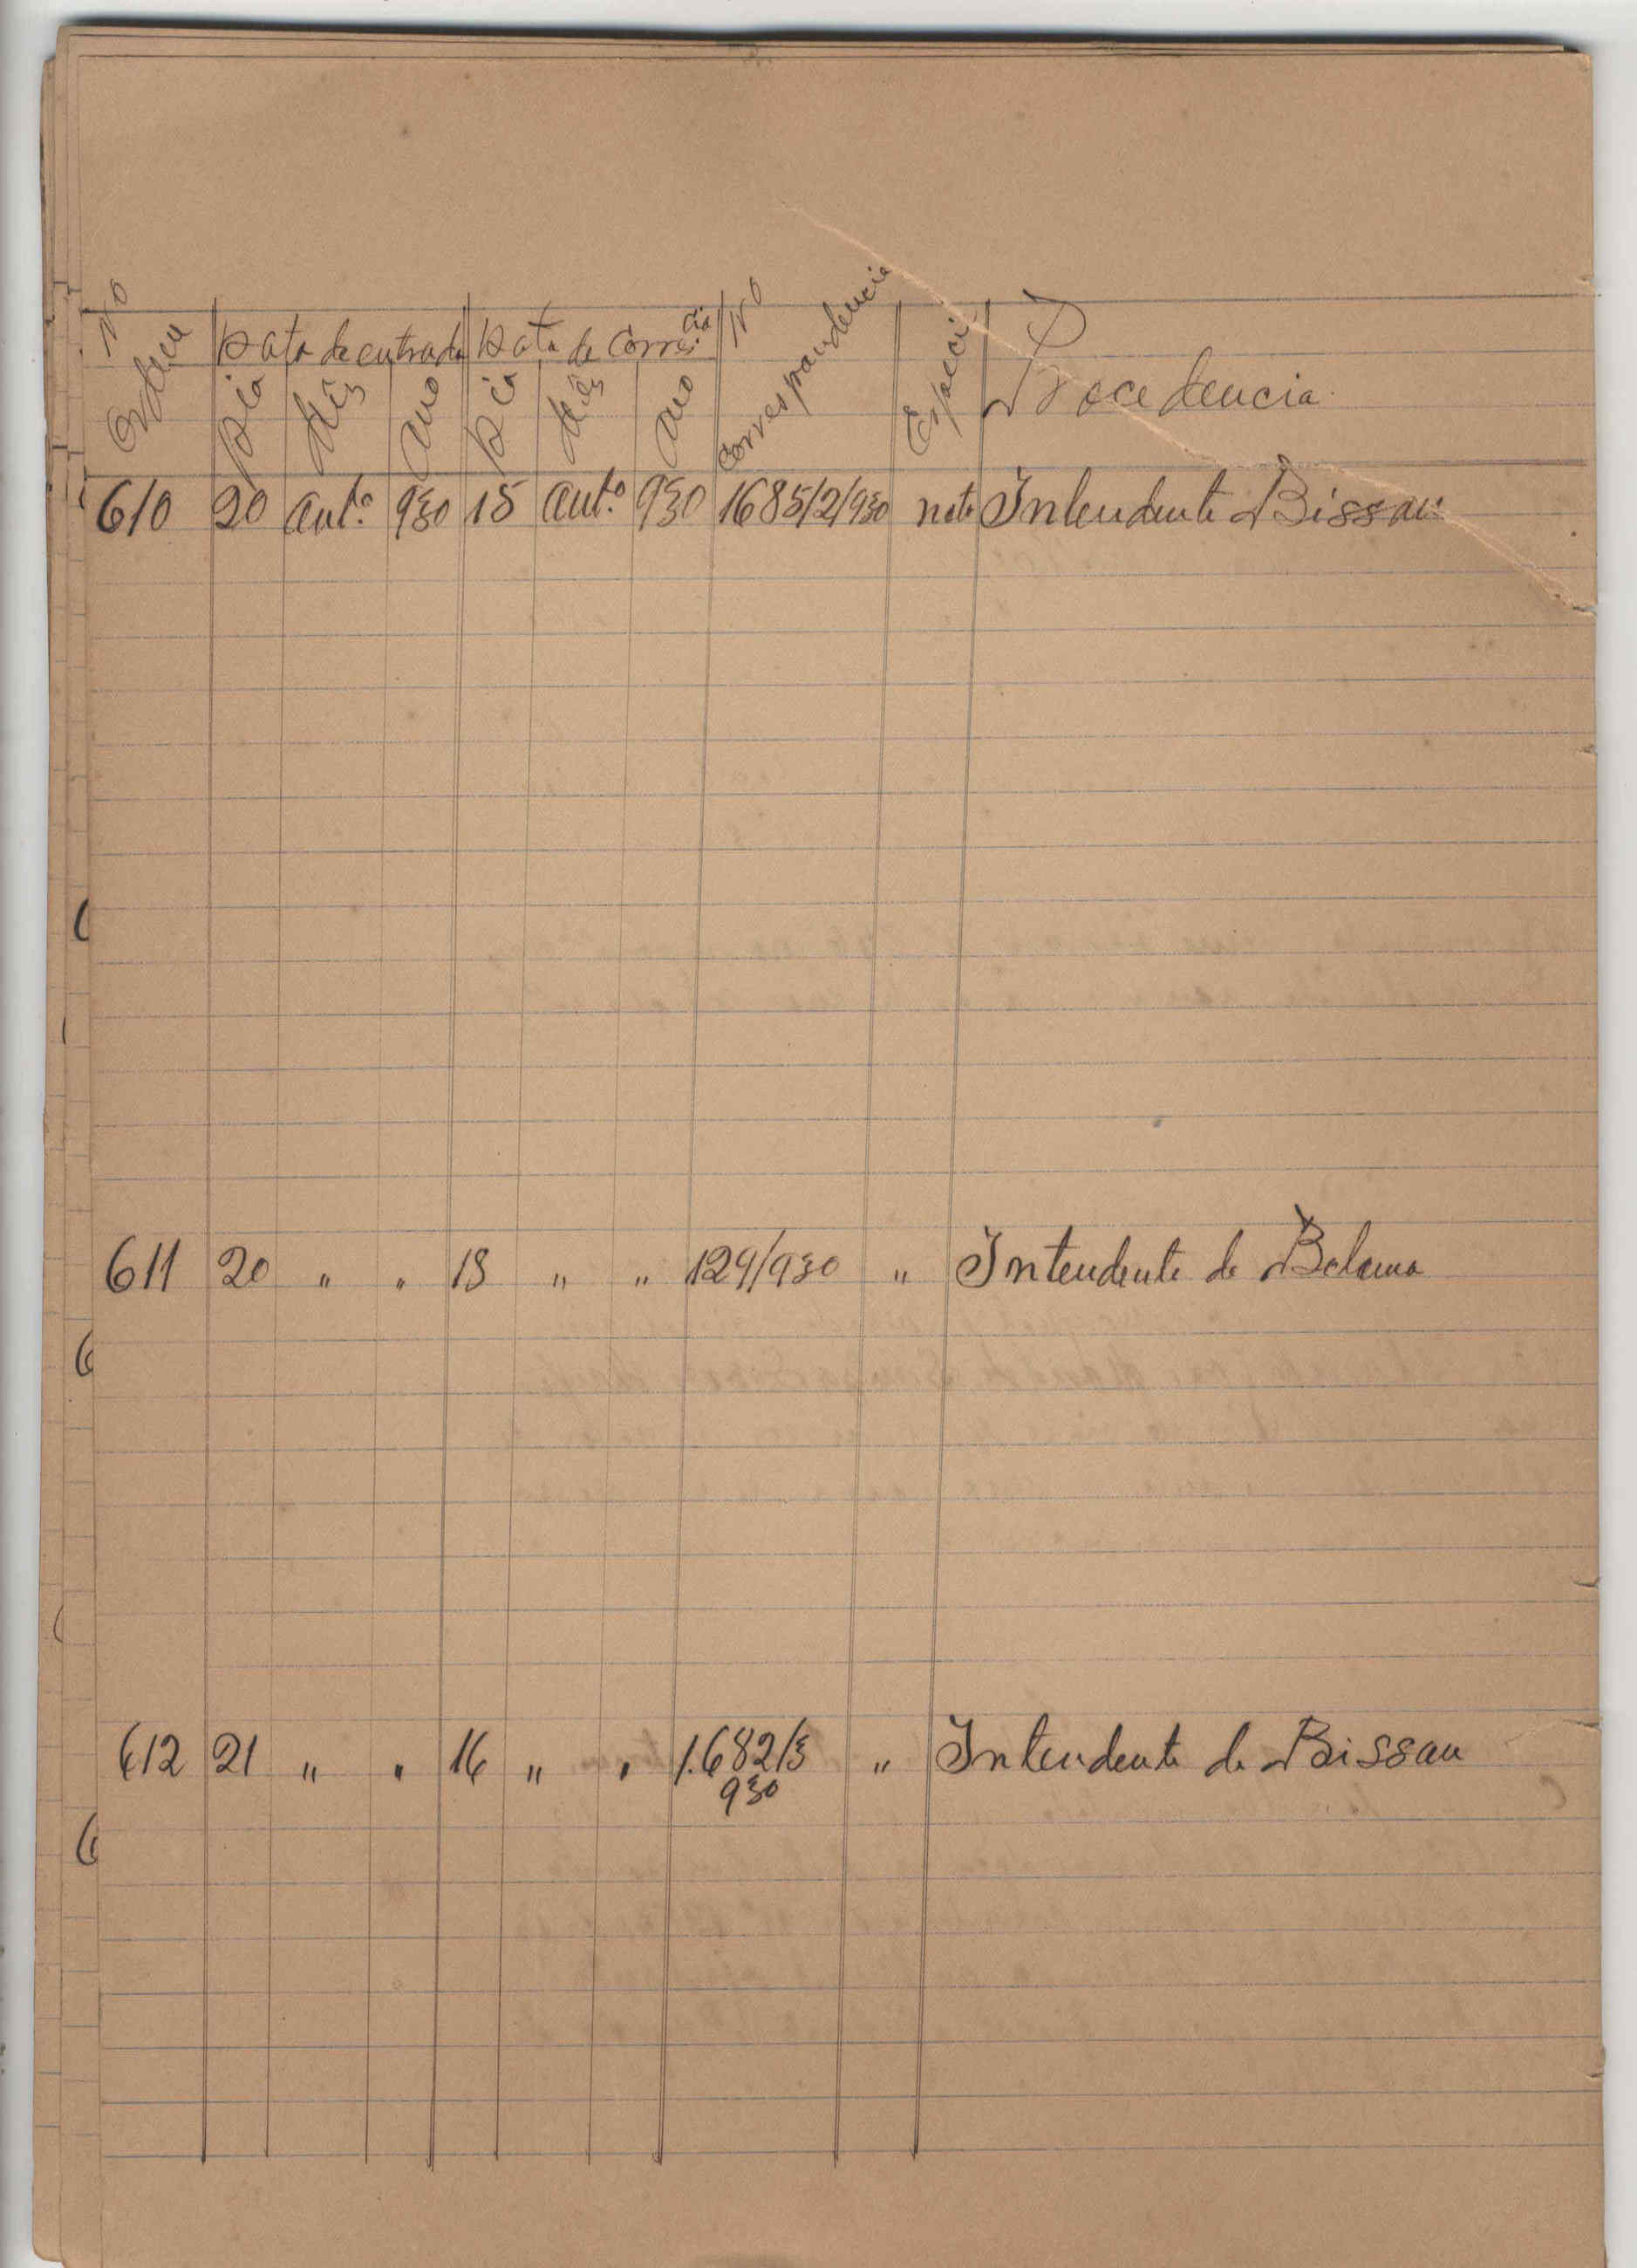 Nº Ordem Data de entrada Data de Corres.cia Nº Correspondencia Especie Procedencia
Dia Mês Ano Dia Mês Ano
610 20 Out.º 930 15 Out.º 930 1685/2/930 nota Intendente Bissau
611 20 " " 18 " " 129/930 " Intendente de Bolama
612 21 " " 16 " " 1.682/3 " Intendente de Bissau
930